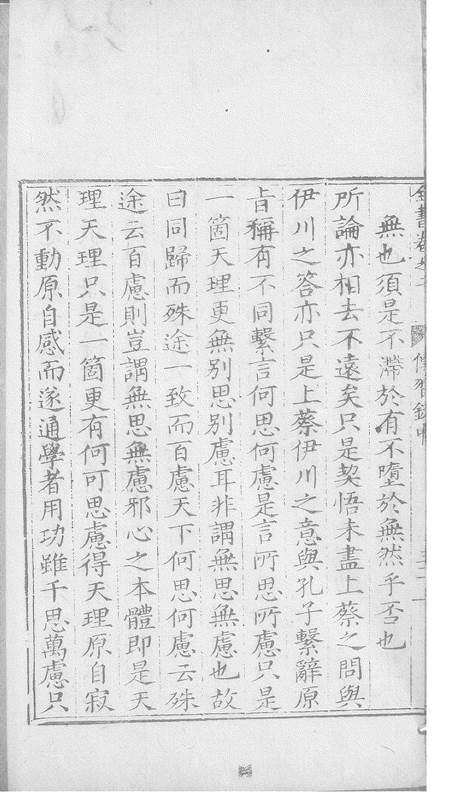 無也須是不滯於有不墮於無然乎否也
所論亦相去不遠矣只是契悟未盡上蔡之問與
伊川之答亦只是上蔡伊川之意與孔子繫辭原
旨稍有不同繫言何思何慮是言所思所慮只是
一箇天理更無別思別慮耳非謂無思無慮也故
曰同歸而殊途一致而百慮天下何思何慮云殊
途云百慮則豈謂無思無慮邪心之本體即是天
理天理只是一箇更有何可思慮得天理原自寂
然不動原自感而遂通學者用功雖千思萬慮只